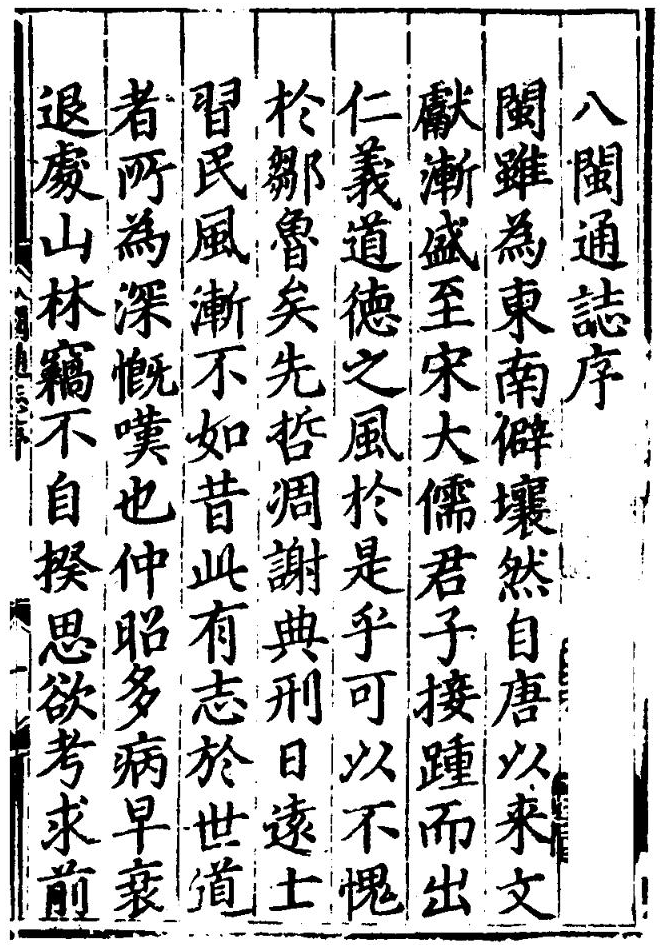 八閩通誌序
閩雖為東南僻壤然自唐以來文
獻漸盛至宋大儒君子接踵而出
仁義道德之風於是乎可以不愧
於鄒魯矣先哲凋謝典刑日遠士
習民風漸不如昔此有志於世道
者所為深慨嘆也仲昭多病早衰
退處山林竊不自揆思欲考求前